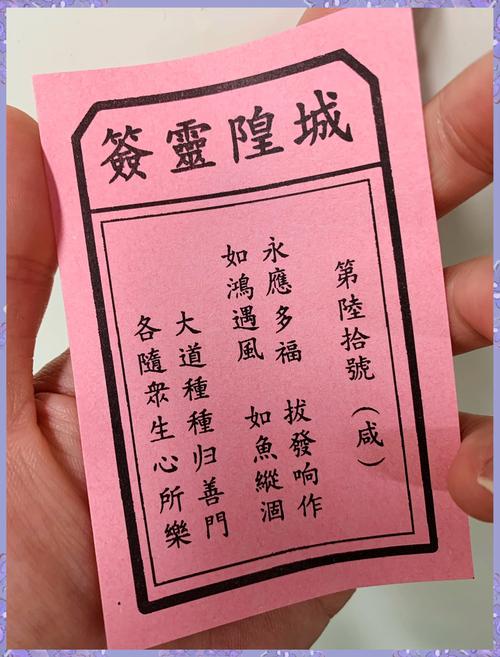 城隍靈簽
第陸拾號（咸）
永應多福　拔發响作
如鴻遇風　如魚縱涸
大道種種归善門
各隨衆生心所樂